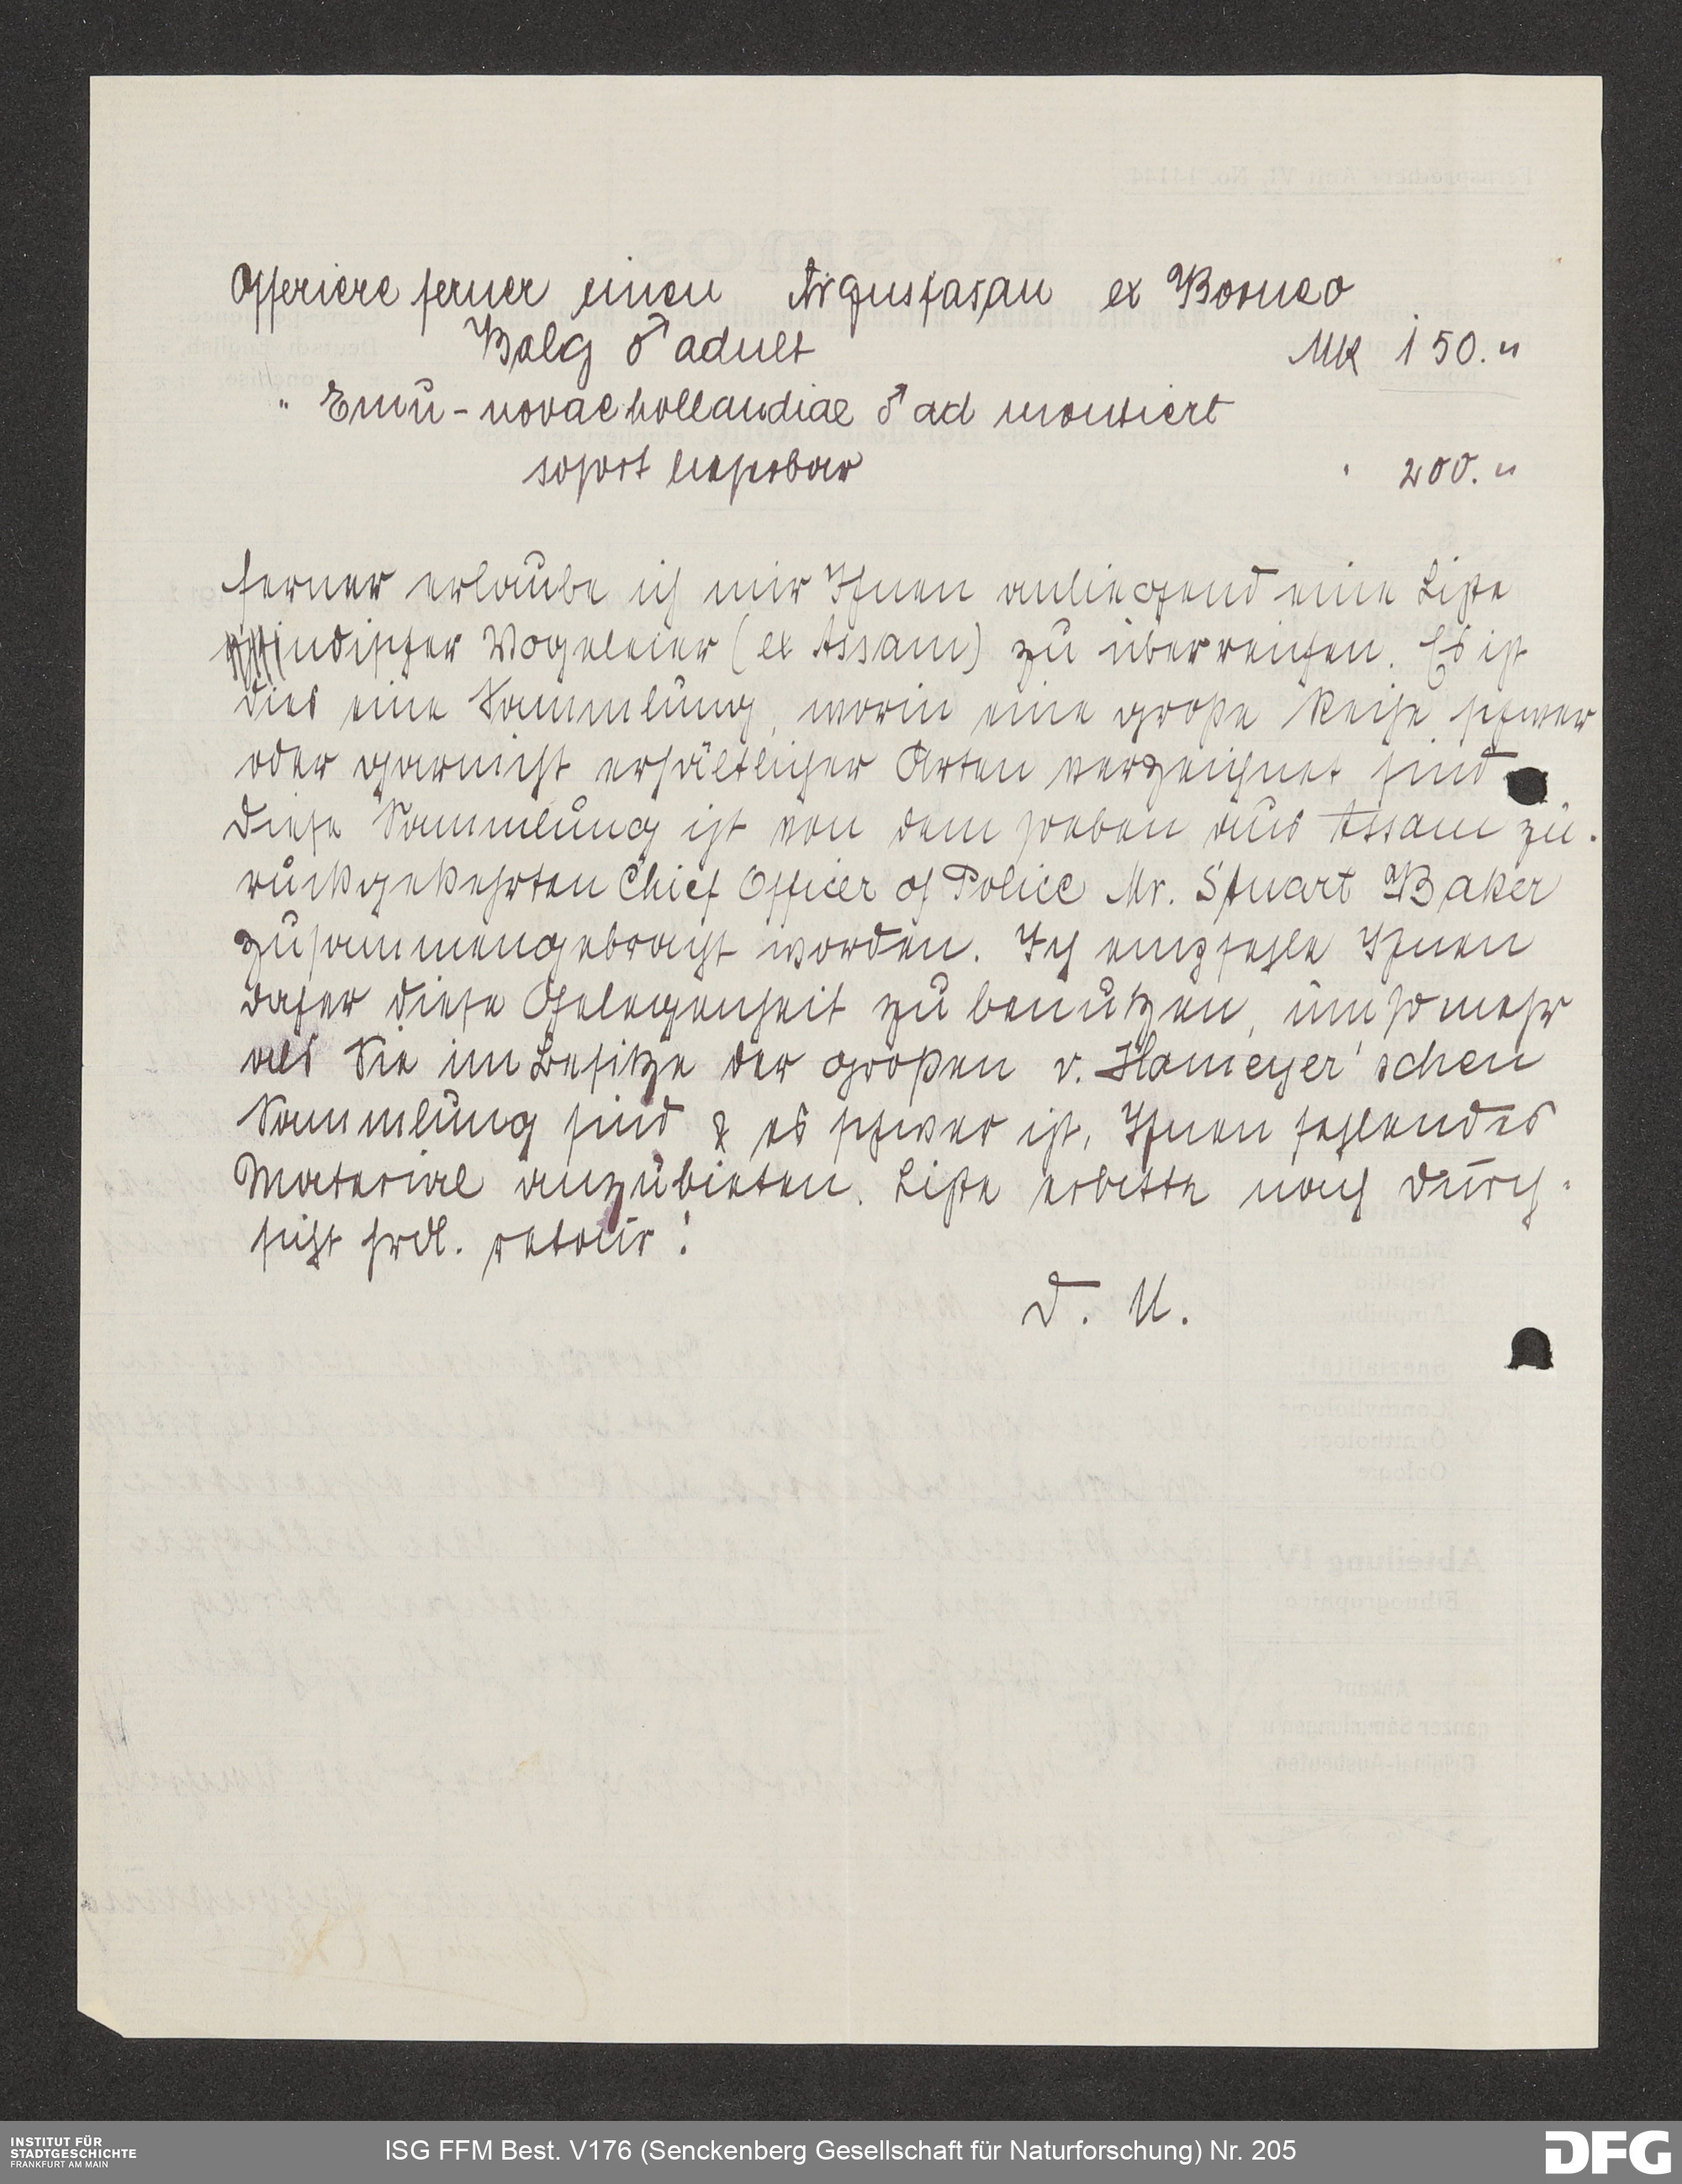 Offeriere ferner einen Argusfasan ex Borneo
Balg ♂ adult Mk 150."
" Emu - novae hollandiae ♂ ad montiert
sofort lieferbar " 200."
Ferner erlaube ich mir Ihnen anliegend eine Liste
indischer Vogeleier (ex Assam) zu überreichen. Es ist
dies eine Sammlung, worin eine große Reihe schwer
oder garnicht erhältlicher Arten verzeichnet sind
Diese Sammlung ist von dem soeben aus Assam zu-
rückgekehrten Chief Officer of Police Mr. Stuart Baker
zusammengebracht worden. Ich empfehle Ihnen
daher diese Gelegenheit zu benutzen, umso mehr
als Sie im Besitze der großen v. Homeyer'schen
Sammlung sind & es schwer ist, Ihnen fehlendes
Material anzubieten. Liste erbitte nach Durch-
sicht frdl. retour!
D. U.
INSTITUT FÜR
STADTGESCHICHTE
FRANKFURT AM MAIN
ISG FFM Best. V176 (Senckenberg Gesellschaft für Naturforschung) Nr. 205
DFG